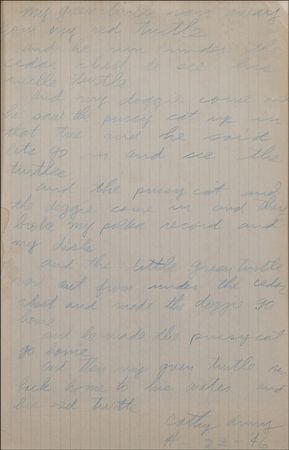 my green turtle ran away
from my red turtle
and he run under the
cedar chest to see his
little turtle
and my doggie come and
he saw the pussy cat up in
that tree and he said
lets go in and see the
turtle
and the pussy cat and
the doggie came in and they
broke my polka record and
my dishes
and the little green turtle
ran out from under the cedar
chest and made the doggie go
home
and he made the pussy cat
go home
and then my green turtle
back home to his water and
his red turtle
Cathy
22-46